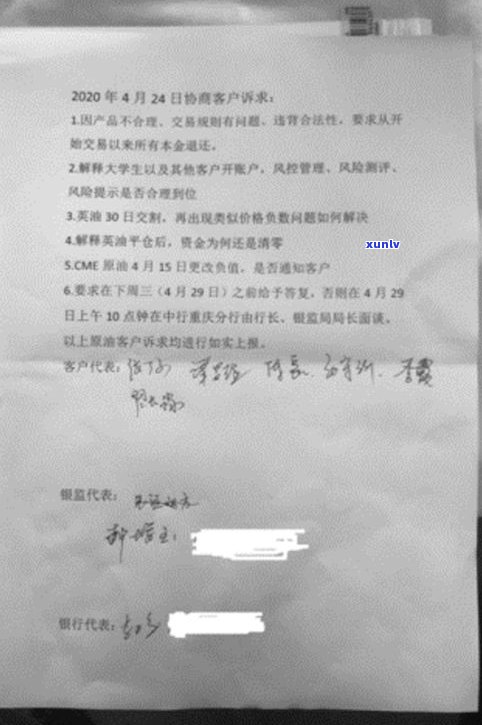 2020 年 4 月 24 日协商客户诉求：
1.因产品不合理、交易规则有问题、违背合法性，要求从开
始交易以来所有本金退还。
2.解释大学生以及其他客户开账户，风控管理、风险测评、
风险提示是否合理到位
3.英油 30 日交割，再出现类似价格负数问题如何解决
4.解释英油平仓后，资金为何还是清零
xunlv
5.CME 原油 4 月 15 日更改负值，是否通知客户
6.要求在下周三（4 月 29 日）之前给予答复，否则在 4 月 29
日上午 10 点钟在中行重庆分行由行长、银监局局长面谈。
以上原油客户诉求均进行如实上报。
客户代表：
银监代表：
银行代表：